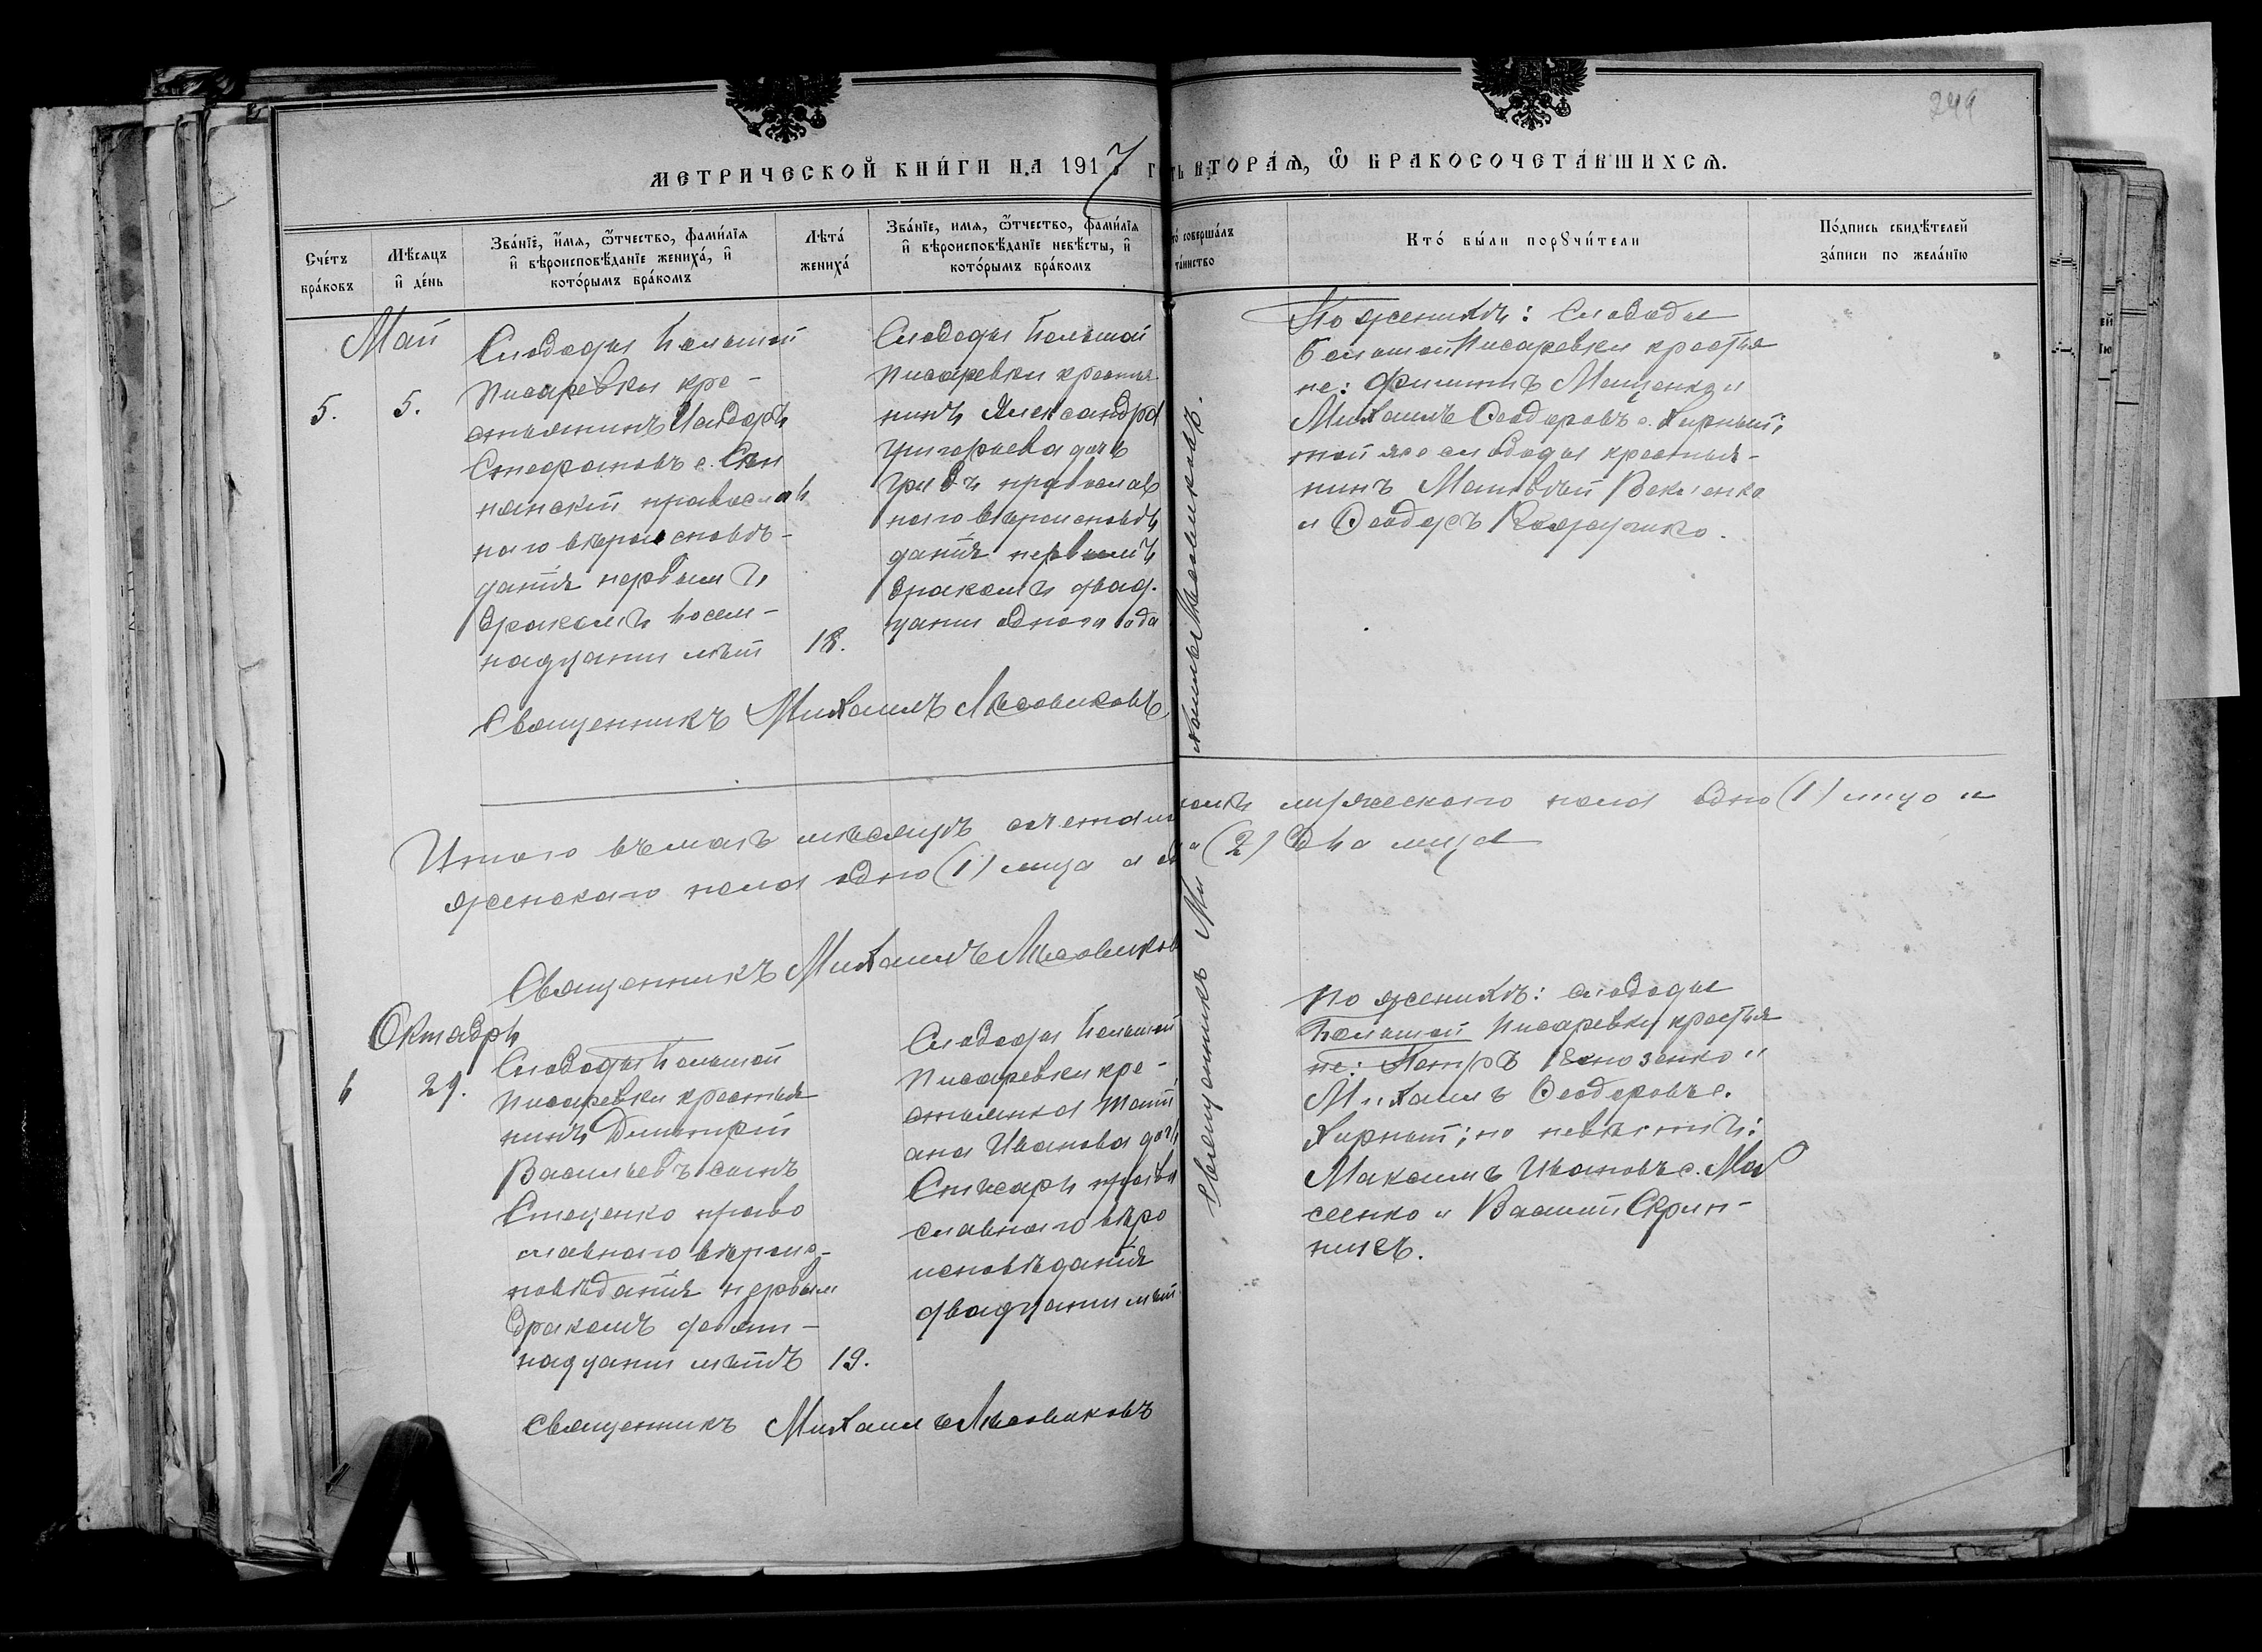 249
МЕТРИЧЕСКОЙ КНИ́ГИ НА 1917 Г
ТЬ ВТОРА́Ѧ, Ѿ БРАКОСОЧЕТА́ВШИХСѦ.
Сче́тъ бра́ковъ
Мѣ́сяцъ и҆ де́нь
Зва́нїе, и҆́мѧ, ѻ҆́тчество, фами́лїѧ и҆ вѣроисповѣ́данїе жениха́, и҆ кото́рымъ бра́комъ
Лѣта́ жениха́
Зва́нїе, имѧ, ѻ҆́тчество, фами́лїѧ и҆ вѣроисповѣ́данїе невѣ́сты, и҆ кото́рымъ бра́комъ
то́ соверша́лъ та́инство
Кто́ бы́ли порꙋчи́тели
По́дпись свидѣ́телей за́писи по жела́нїю
Май
5.
5.
Слободы Большой
Писаревки кре-
стьянинъ Исидоръ
Стефановъ с.
православ
наго вѣроисповѣ-
данія первымъ
бракомъ восем-
надцати лѣтъ
18.
Слободы Большой
Писаревки крестья
Александра
Григорьева дочь
православ
наго вѣроисповѣ
данія первымъ
бракомъ двад-
цати одного года
По женихѣ: Слободы
Большой Писаревки крестья
не: Филиппъ Мащенко и
Михаилъ Ѳеодоровъ с. Кирный;
той же слободы крестья-
нинъ Матвѣй Векленко
и Ѳеодоръ
Священникъ Михаилъ Мѣсовиковъ
Итого въ маѣ мѣсяцѣ
мужеского пола одно (1) лицо и
женскаго пола одно (1) лицо а
(2) два лица
Священникъ Михаилъ Мѣсовиков
Октябрь
6
29.
Слободы Большой
Писаревки крестья
нинъ Димитрій
Васильевъ сынъ
Стеценко право
славнаго вѣроис-
повѣданія первым
бракомъ девят-
надцати лѣтъ
19.
Слободы Большой
Писаревки кре-
стьянка Тати
ана Иванова дочь
Слѣсарь право
славнаго вѣро
исповѣданія
двадцати лѣт
По женихѣ: слободы
Большой Писаревки крестья
не: Петръ и
Михаилъ Ѳеодоровъ с.
Кирный; по невѣстѣ:
Максимъ Ивановъ с. Мо
сеенко и Василій Скрин-
никъ.
Священникъ Михаилъ Мѣсовиковъ